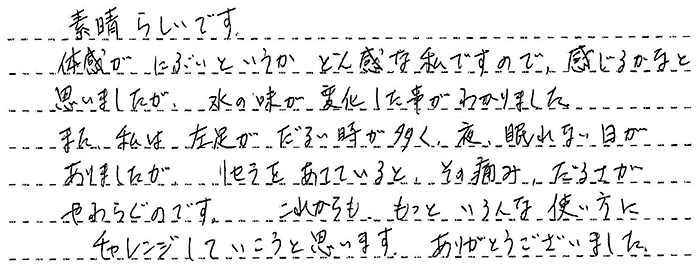 素晴らしいです
体感が にぶいというか どん感な私ですので、感じるかなと
思いましたが、水の味が変化した事がわかりました。
また 私は 左足が だるい時が多く、夜、眠れない日が
ありましたが、リセラを あてていると、その痛み、だるさが
やわらぐのです。 これからも もっと いろんな 使い方に
チャレンジしていこうと思います。 ありがとうございました。